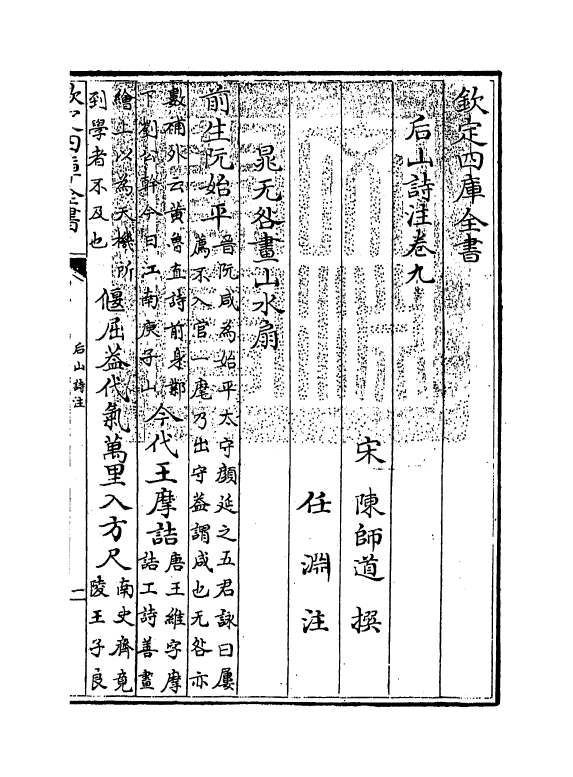 欽定四庫全書
后山詩注卷九
宋 陳師道 撰
任 淵 注
晁无咎畫山水扇
前生阮始平晉阮咸為始平太守顔延之五君詠曰屢
薦不入官一麾乃出守益謂咸也无咎亦
數補外云黄魯直詩前身鄴
下劉公幹今日江南庾子山今代王摩詰唐王維字摩
詰工詩善畫
繪上以為天機所
到學者不及也偃屈葢代氣萬里入方尺南史齊竟
陵王子良
欽定四庫全書
后山詩注
一